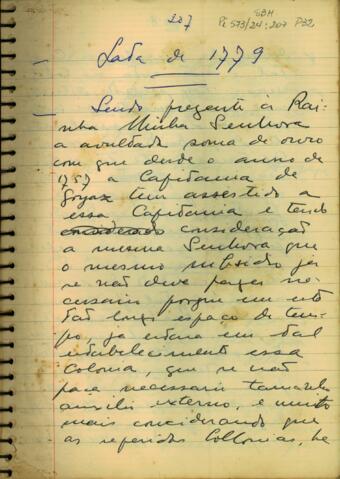 207
SBH
Pi 573/24:207 P32
— Lada de 1779
— Sendo prezente à Rai-
nha Minha Senhora
a avultada soma de ouro
com que desde o anno de
1757 a Capitania de
Goyaz tem assestido a
essa Capitania e tendo
considerado consideração
a mesma Senhora que
o mesmo subsidio já
se não deve fazer ne-
cessario porque em este
tão longo espaço de tem-
po, já estará em tal
estabelecimento essa
Colonia, que se não
faça necessario tamanho
auxilio externo, e muito
mais considerando que
as referidas Collonias, he